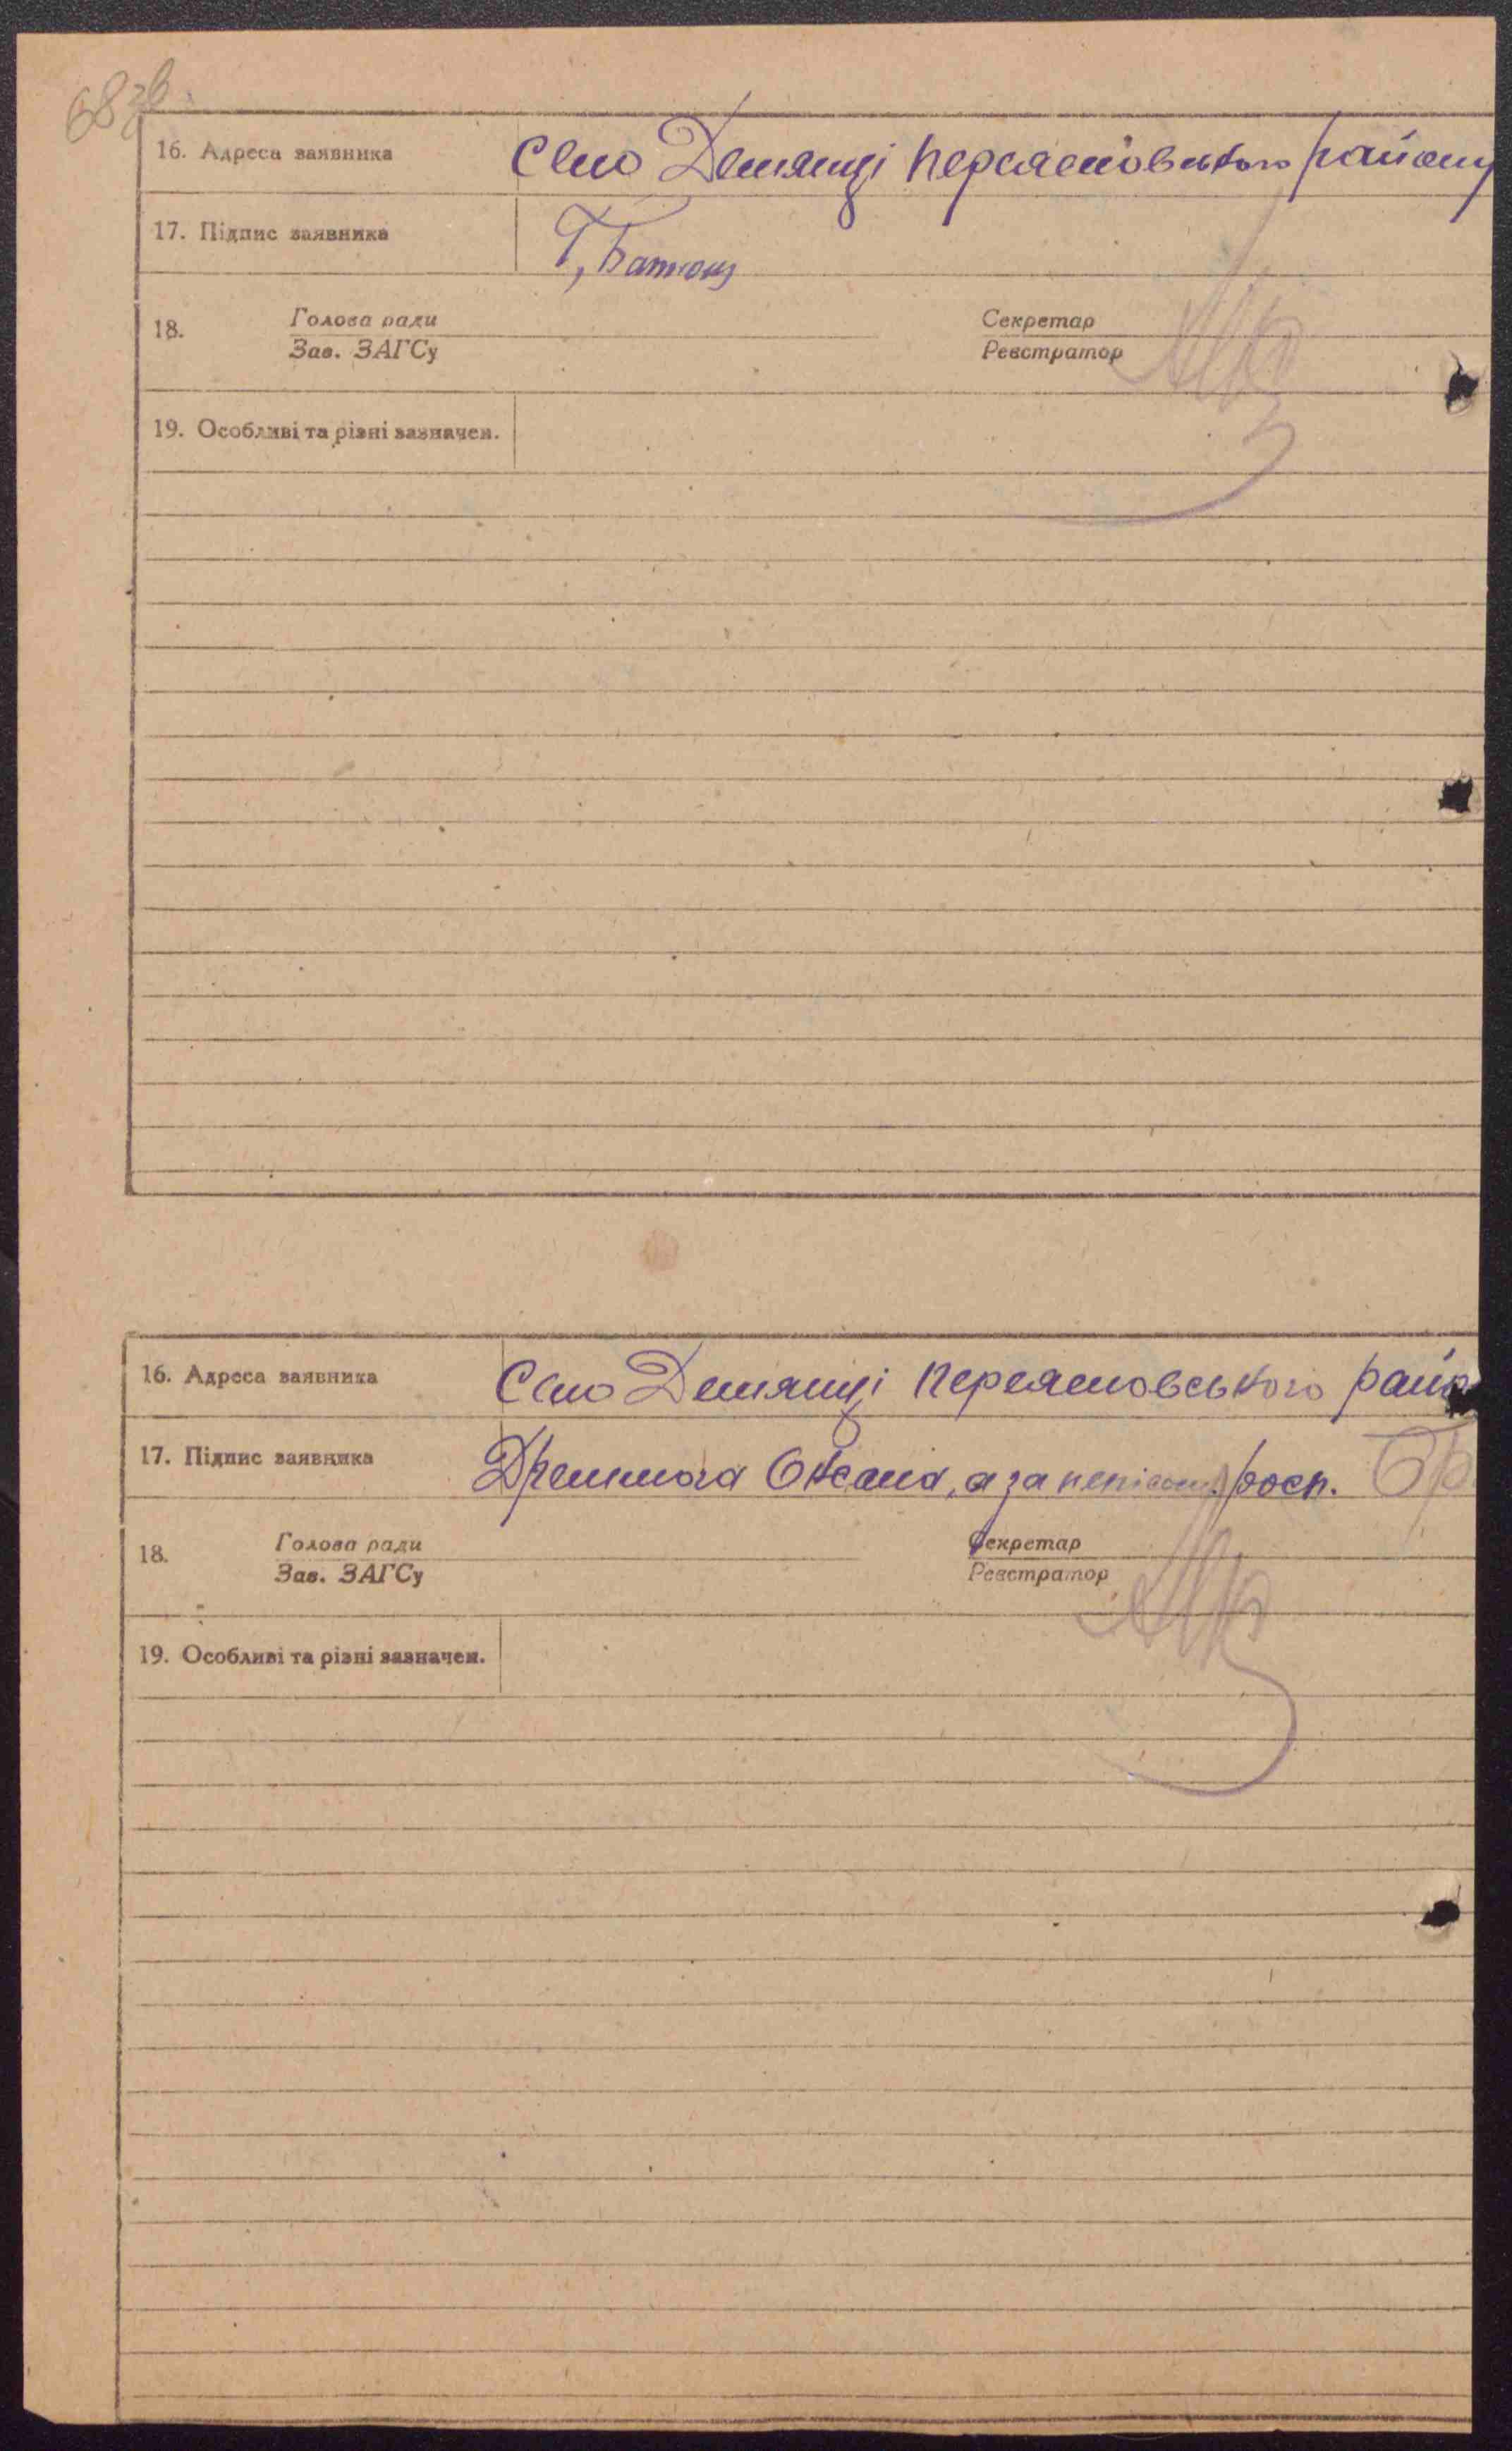 68 зв.
16. Адреса заявника Село Демянці Переяславського району
17. Підпис заявника Г,
18. Голова ради Секретар
Зав. ЗАГСу Реєстратор
19. Особливі та різні зазначен.
16. Адреса заявника Село Демянці Переяславського рай
17. Підпис заявника Оксана, а за неписьм. росп.
18. Голова ради Секретар
Зав. ЗАГСу Реєстратор
19. Особливі та різні зазначен.